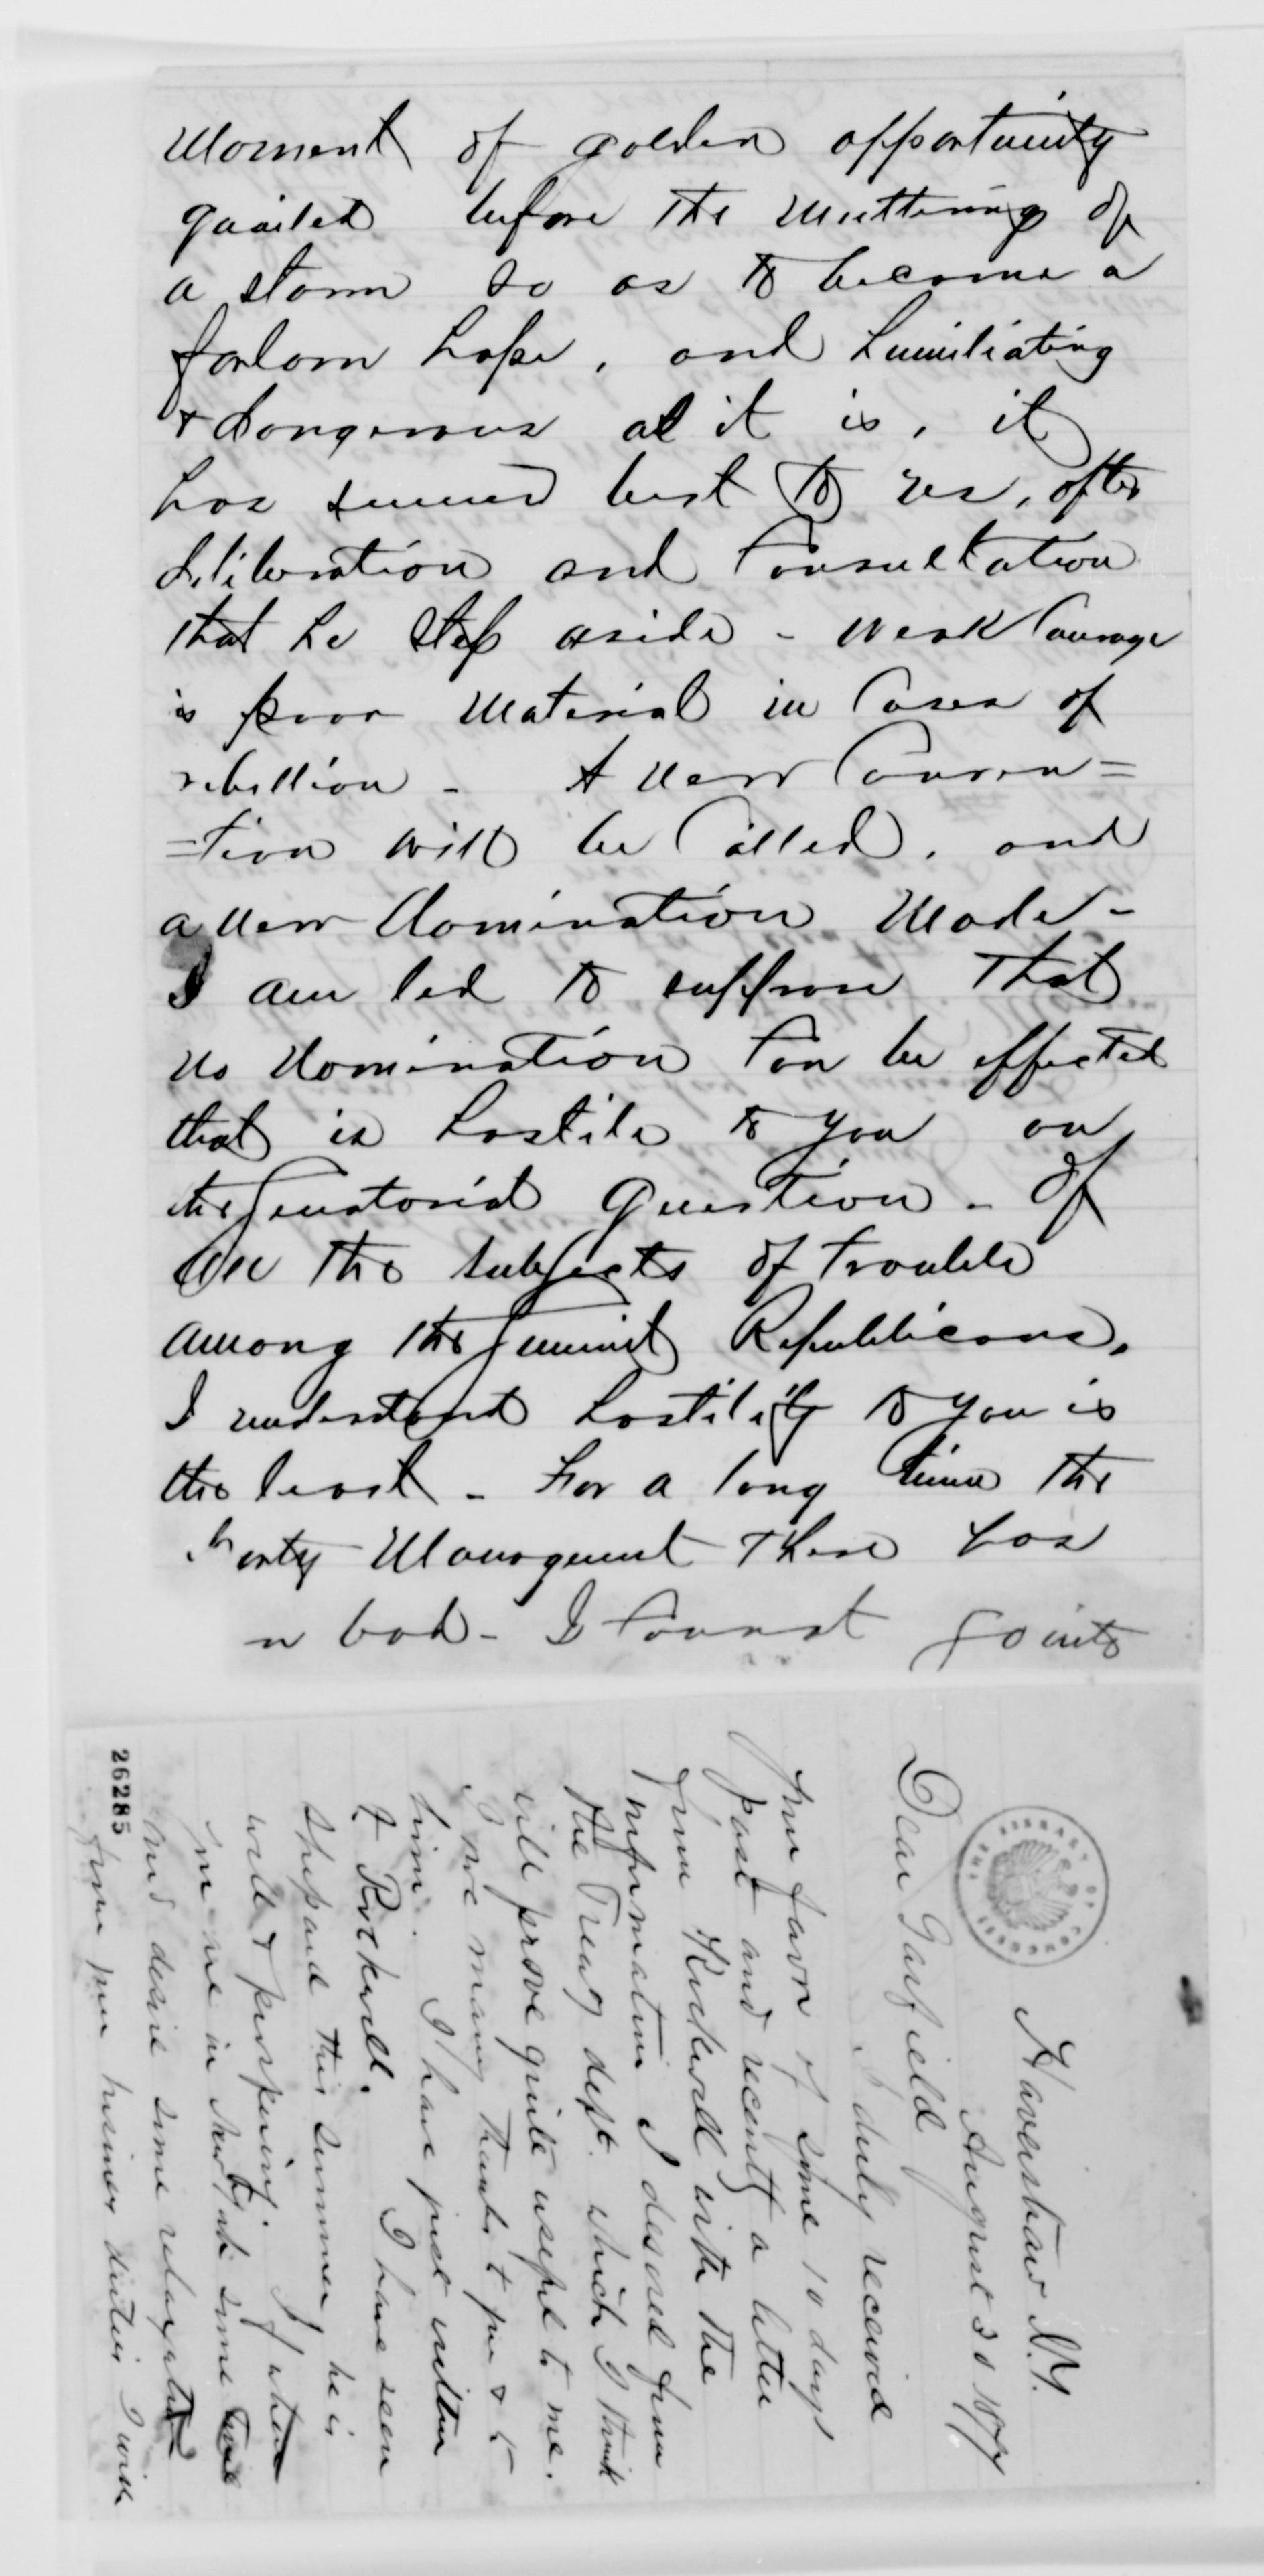 Moment of golden opportunity
quailed before the mutterings of
a storm so as to become a
forlorn hope, and humiliating
& dangerous as it is, it
has seemed best to us, after
deliberation and Consultation
that he step aside - weak Courage
is poor Material in Cases of
rebellion - A new Conven=
=tion will be Called, and
a new Nomination Made -
I am led to suppose that
no Nomination Can be effected
that is hostile to you on
the Senatorial question - Of
all the subjects of trouble
among the Summit Republicans,
I understand hostility to you is
the least - For a long time the
party Management there has
n bad - I Cannot go into
Haverstraw N.Y.
August 30 1874
Dear Garfield
I duly received
your favor of some 10 days
past and recently a letter
from Rockwell with the
information I desired from
the Treay dept. which I think
will prove quite useful to me.
I owe many thanks to you & to
him. I have just written
to Rockwell. I have seen
Shepard this summer, he is
well & prospering. If when
you are in New York some time
and desire some relaxation
from your business duties I wish
26285
THE LIBRARY OF CONGRESS